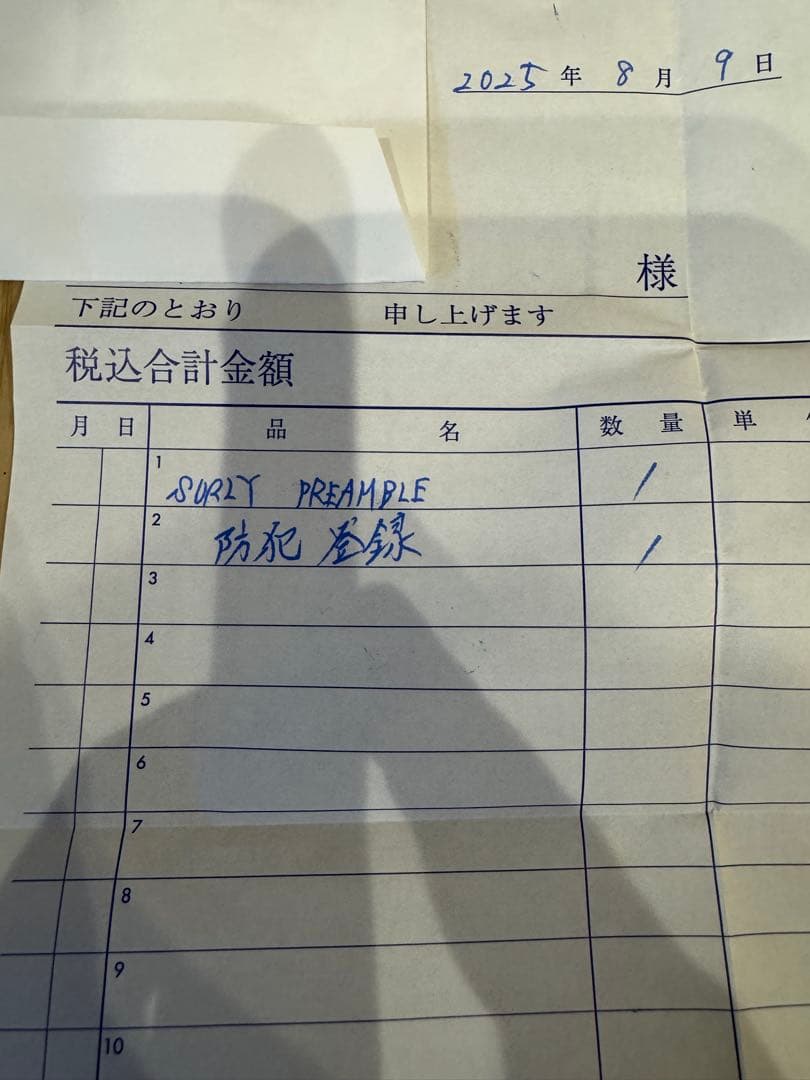 2025年 8月 9日
様
下記のとおり 申し上げます
税込合計金額
月 日 品 名 数 量 単
1 SURLY PREAMBLE 1
2 防犯登録 1
3
4
5
6
7
8
9
10